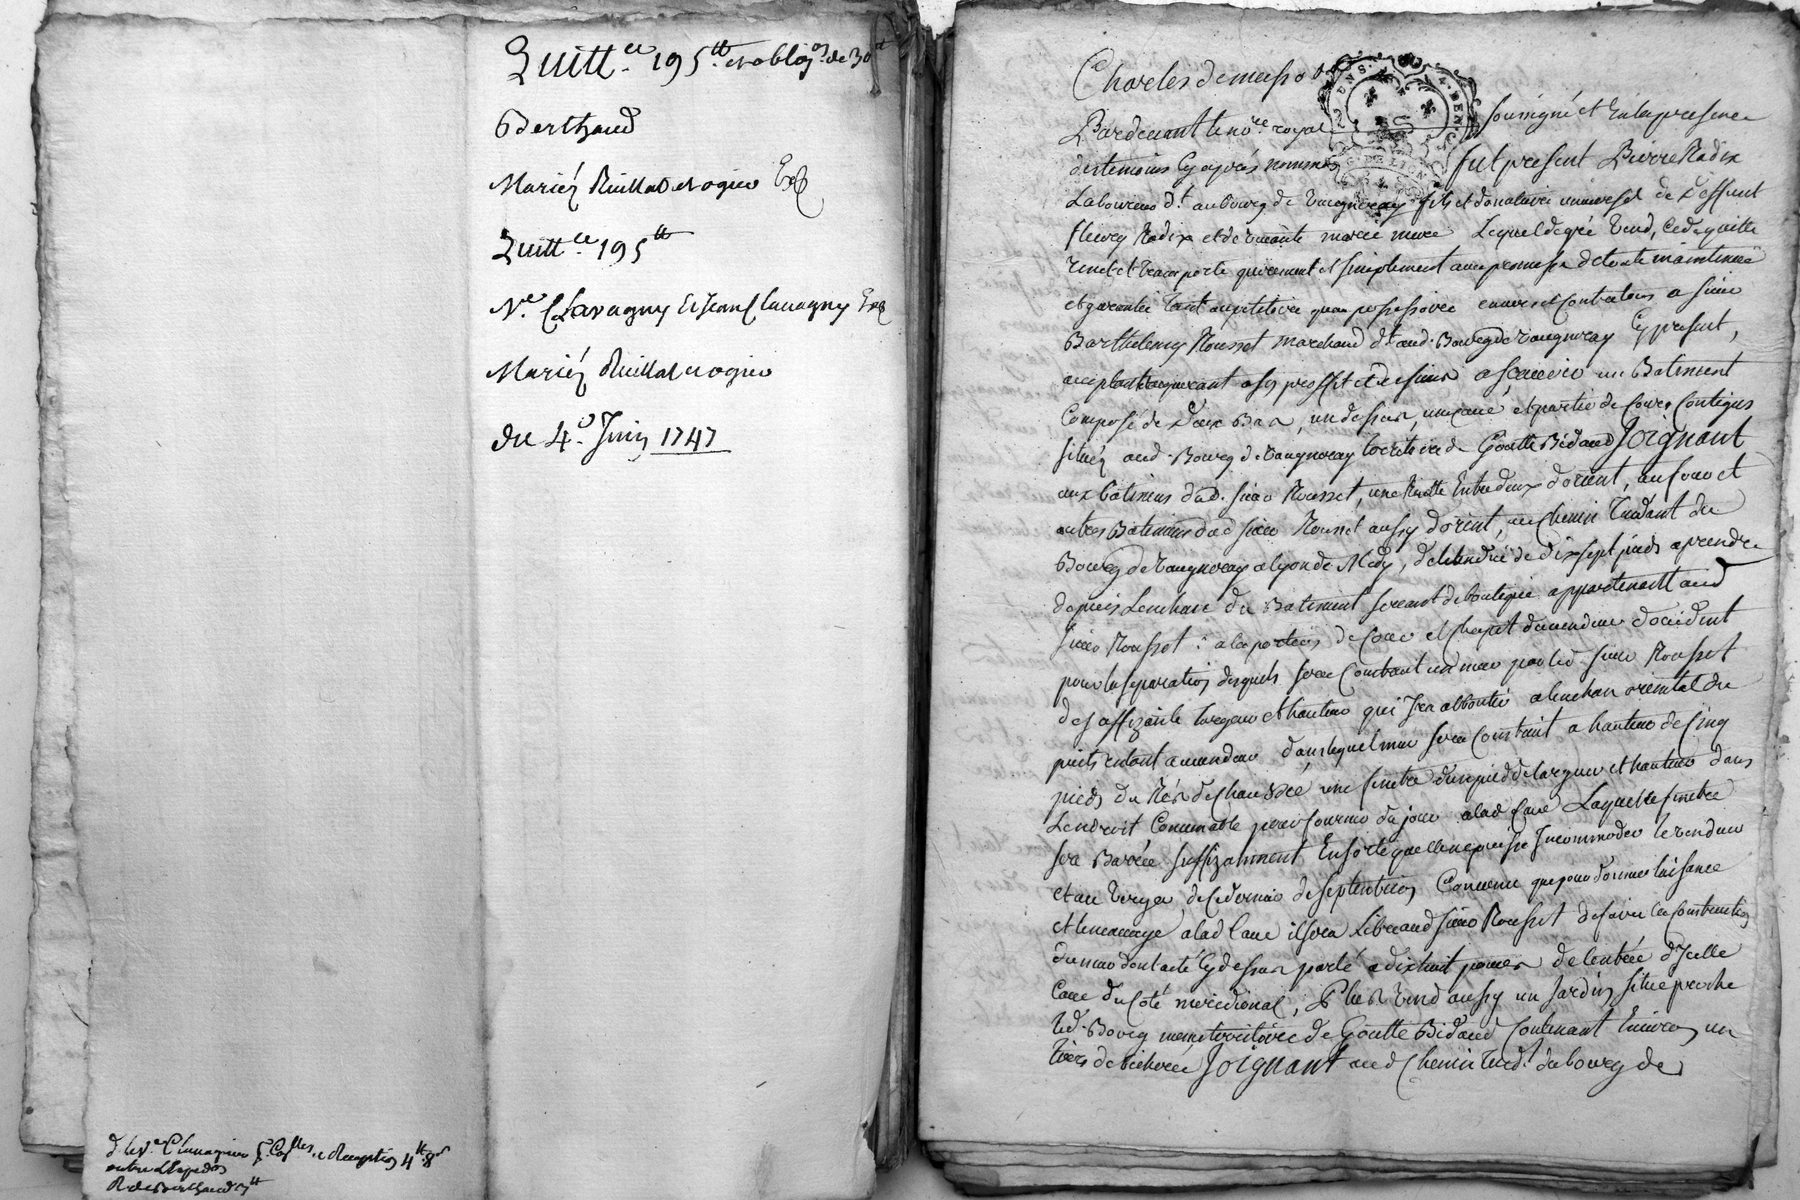 Quitt.ce 195 tt et oblig.on de 30 tt
Berthaud
Mariéz Ruillat et ogier Exp
Quitt.ce 195 tt
V.e Chavagny et Jean Chavagny Exp
Mariéz Ruillat et ogier
du 4.e Juin 1747
Charles de masso
Pardevant le no.re royal soussigné et En la presence
des temoins Cy aprés nommés fut present Pierre Radix
Laboureur d.t au bourg de Vaugneray fils et donataire universel de deffunt
fleury Radix et de vivante marie mure Lequel de gré vend, cede quitte
remet et transporte purement et simplement avec promesse de toute maintenue
et garentie tant au petitoire qu'au possessoire envers et Contre tous a sieur
Barthelemy Rousset marchand d.t aud. Bourg de Vaugneray Cy present,
acceptant acquerant a son proffit et des siens a sçavoir un Batiment
Composé de deux Bas, un dessus, une cave et partie de Cour Contigus
situéz aud. Bourg de Vaugneray territoire de Goutte Bidaud Joignant
aux bâtimens dud. sieur Rousset, une Ruette Entredeux d'orient, au four et
autres Batimens dud sieur Rousset aussy d'orient, un Chemin Tendant du
Bourg de Vaugneray a Lyon de Midy, de l'etendüe de dix sept pieds a prendre
depuis L'enchant du Batiment servant de boutique appartenant aud
sieur Rousset : a la portion de Cour et Chapit du vendeur d'occident
pour la separation desquels sera Construit un mur par led. sieur Rousset
de suffizante largeur et hauteur qui Ira abboutir a l'enchan oriental du
puits restant au vendeur dans lequel mur sera Construit a hauteur de Cinq
pieds du Réz de Chaussée une fenetre d'un pied de largeur et hauteur dans
L'endroit Convenable pour fournir du jour a lad Cave Laquelle fenetre
sera Barrée suffizamment En sorte qu'elle ne puisse Incommoder le vendeur
et au verger de Ce dernier de septentrion Convenu que pour donner l'aisance
et le menage a lad Cave il sera Libre aud sieur Rousset de faire la Construction
du mur dont a eté Cy dessus parlé a dix huit pouces de l'entrée d'Icelle
Cave du Coté meridional, Plus vend aussy un Jardin situé proche
led. Bourg meme territoire de Goutte Bidaud Contenant Environ un
tiers de bicherée Joignant aud Chemin tend.t du bourg de